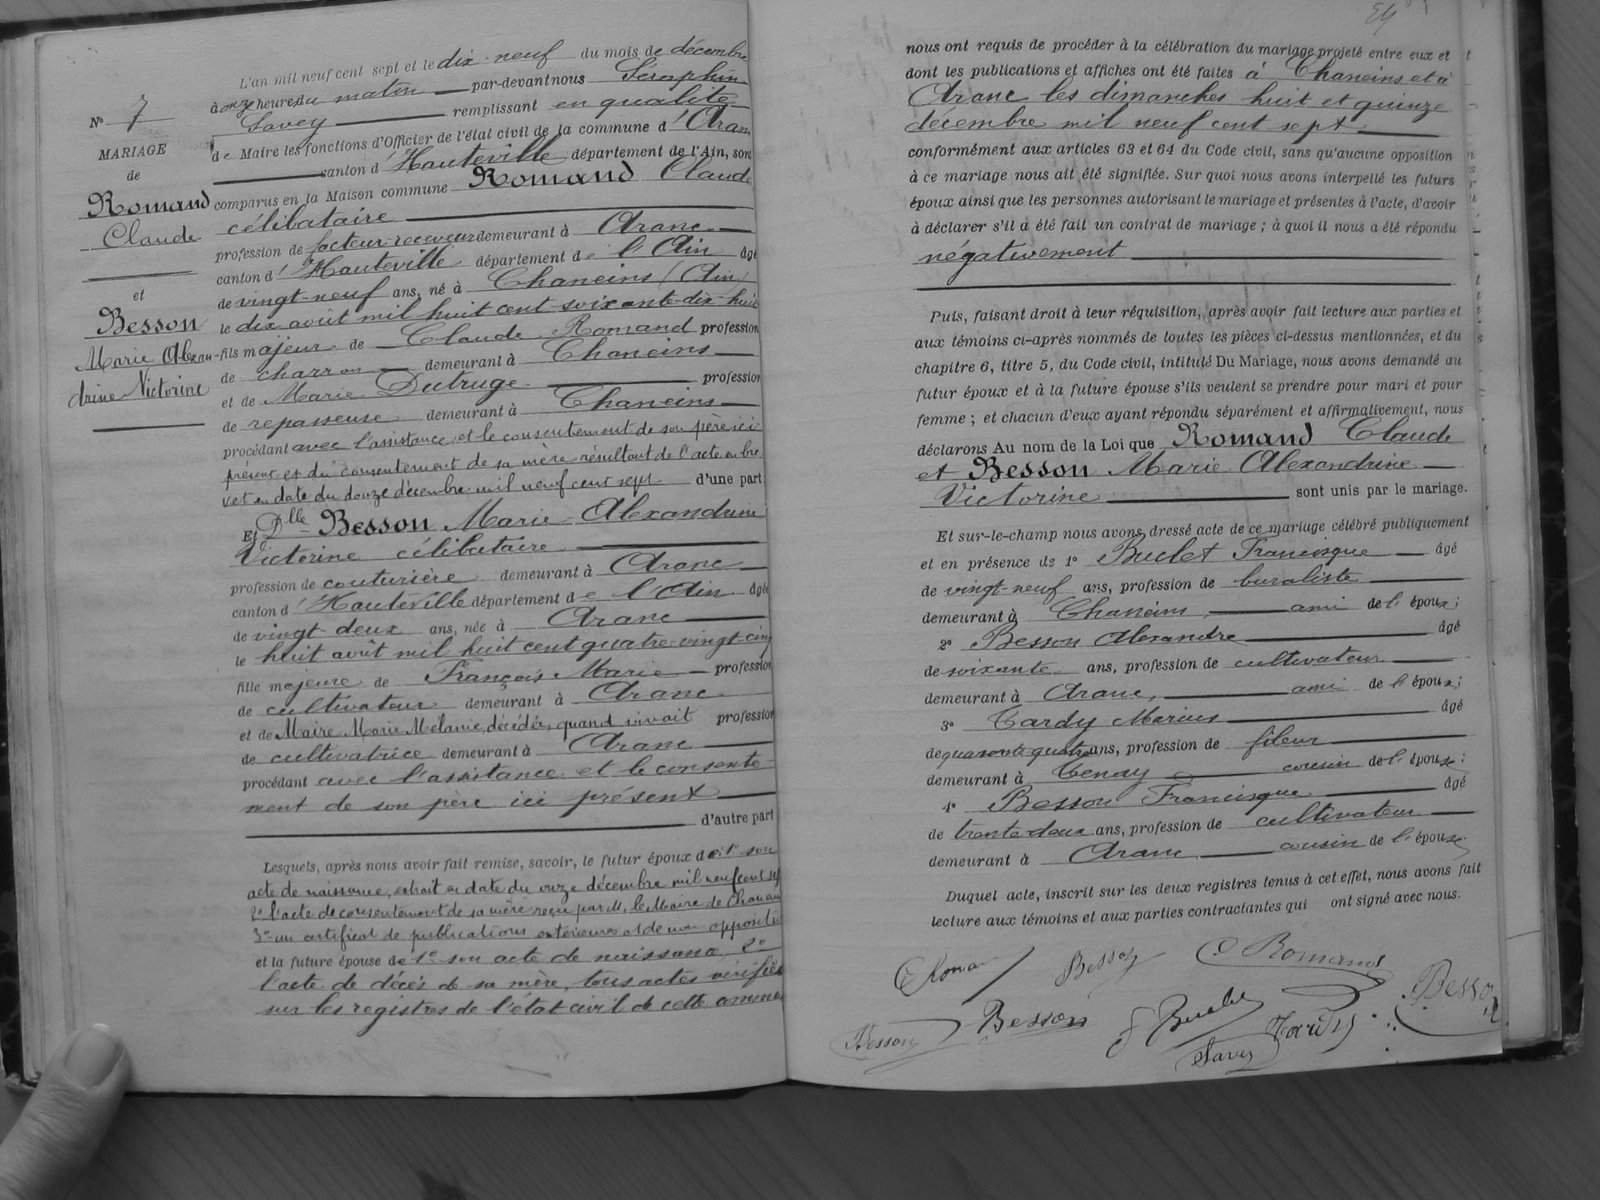 L'an mil neuf cent sept et le dix-neuf du mois de décembre
à onze heures du matin par-devant nous Séraphin
Savey remplissant en qualité
de Maire les fonctions d'Officier de l'état civil de la commune d'Aranc
canton d'Hauteville département de l'Ain, sont
comparus en la Maison commune Romand Claude
célibataire
profession de facteur-receveur demeurant à Aranc
canton d'Hauteville département de l'Ain âgé
de vingt-neuf ans, né à Chaneins (Ain)
le dix août mil huit cent soixante-dix-huit
fils majeur de Claude Romand profession
de charron demeurant à Chaneins
et de Marie Dutruge profession
de repasseuse demeurant à Chaneins
procédant avec l'assistance et le consentement de son père ici
présent et du consentement de sa mère résultant de l'acte en bre
vet en date du douze décembre mil neuf cent sept d'une part
Et Dlle Besson Marie Alexandrine
Victorine célibataire
profession de couturière demeurant à Aranc
canton d'Hauteville département de l'Ain âgée
de vingt-deux ans, née à Aranc
le huit août mil huit cent quatre-vingt-cinq
fille majeure de François Marie profession
de cultivateur demeurant à Aranc
et de Maire Marie Mélanie, décédée, quand vivait profession
de cultivatrice demeurant à Aranc
procédant avec l'assistance et le consente-
ment de son père ici présent
d'autre part
Lesquels, après nous avoir fait remise, savoir, le futur époux de 1° son
acte de naissance, extrait en date du onze décembre mil neuf cent sept
2° l'acte de consentement de sa mère reçu par M. le Maire de Chaneins
3° un certificat de publications extérieures et de non opposition
et la future épouse de 1° son acte de naissance 2°
l'acte de décès de sa mère, tous actes vérifiés
sur les registres de l'état civil de cette commune
N° 7
MARIAGE
de
Romand
Claude
et
Besson
Marie Alexan-
drine Victorine
nous ont requis de procéder à la célébration du mariage projeté entre eux et
dont les publications et affiches ont été faites à Chaneins et à
Aranc les dimanches huit et quinze
décembre mil neuf cent sept
conformément aux articles 63 et 64 du Code civil, sans qu'aucune opposition
à ce mariage nous ait été signifiée. Sur quoi nous avons interpellé les futurs
époux ainsi que les personnes autorisant le mariage et présentes à l'acte, d'avoir
à déclarer s'il a été fait un contrat de mariage ; à quoi il nous a été répondu
négativement
Puis, faisant droit à leur réquisition, après avoir fait lecture aux parties et
aux témoins ci-après nommés de toutes les pièces ci-dessus mentionnées, et du
chapitre 6, titre 5, du Code civil, intitulé Du Mariage, nous avons demandé au
futur époux et à la future épouse s'ils veulent se prendre pour mari et pour
femme ; et chacun d'eux ayant répondu séparément et affirmativement, nous
déclarons Au nom de la Loi que Romand Claude
et Besson Marie Alexandrine
Victorine sont unis par le mariage.
Et sur-le-champ nous avons dressé acte de ce mariage célébré publiquement
et en présence de 1° Buclet Francisque âgé
de vingt-neuf ans, profession de buraliste
demeurant à Chaneins, ami de l'époux ;
2° Besson Alexandre âgé
de soixante ans, profession de cultivateur
demeurant à Aranc, ami de l'époux ;
3° Tardy Marius âgé
de quarante-quatre ans, profession de fileur
demeurant à Tenay cousin de l'épouse ;
4° Besson Francisque âgé
de trente-deux ans, profession de cultivateur
demeurant à Aranc cousin de l'épouse
Duquel acte, inscrit sur les deux registres tenus à cet effet, nous avons fait
lecture aux témoins et aux parties contractantes qui ont signé avec nous.
C Romand Besson C Romand Besson
Besson Besson F Buclet Tardy
Savey